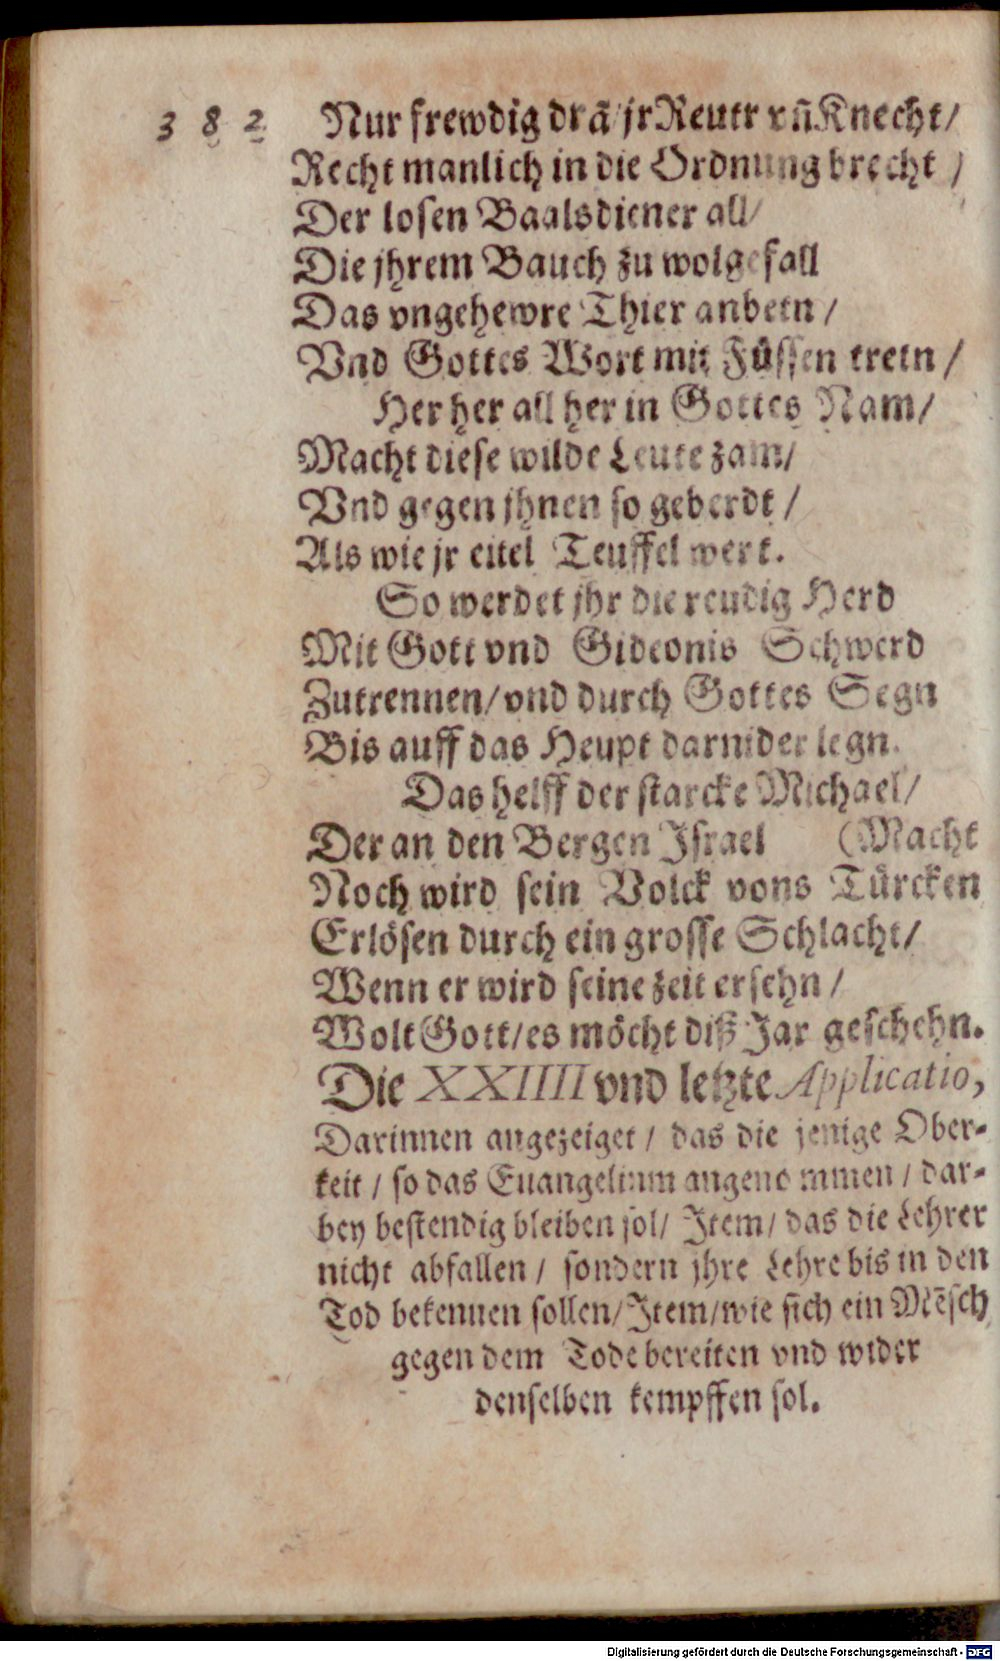 382
Nur frewdig drã/jr Reutr vñ Knecht/
Recht manlich in die Ordnung brecht /
Der losen Baalsdiener all/
Die jhrem Bauch zu wolgefall
Das vngehewre Thier anbetn /
Vnd Gottes Wort mit Füssen tretn /
Her her all her in Gottes Nam/
Macht diese wilde Leute zam/
Vnd gegen jhnen so geberdt /
Als wie jr eitel Teuffel wert.
So werdet jhr die reudig Herd
Mit Gott vnd Gideonis Schwerd
Zutrennen/vnd durch Gottes Segn
Bis auff das Heupt darnider legn.
Das helff der starcke Michael/
Der an den Bergen Israel (Macht
Noch wird sein Volck vons Türcken
Erlösen durch ein grosse Schlacht/
Wenn er wird seine zeit ersehn /
Wolt Gott/es möcht diß Jar geschehn.
Die XXIIII vnd letzte Applicatio,
Darinnen angezeiget / das die jenige Ober-
keit / so das Euangelium angenommen / dar-
bey bestendig bleiben sol/ Item/ das die Lehrer
nicht abfallen / sondern jhre Lehre bis in den
Tod bekennen sollen/Item/wie sich ein Mẽsch
gegen dem Tode bereiten vnd wider
denselben kempffen sol.
Digitalisierung gefördert durch die Deutsche Forschungsgemeinschaft - DFG